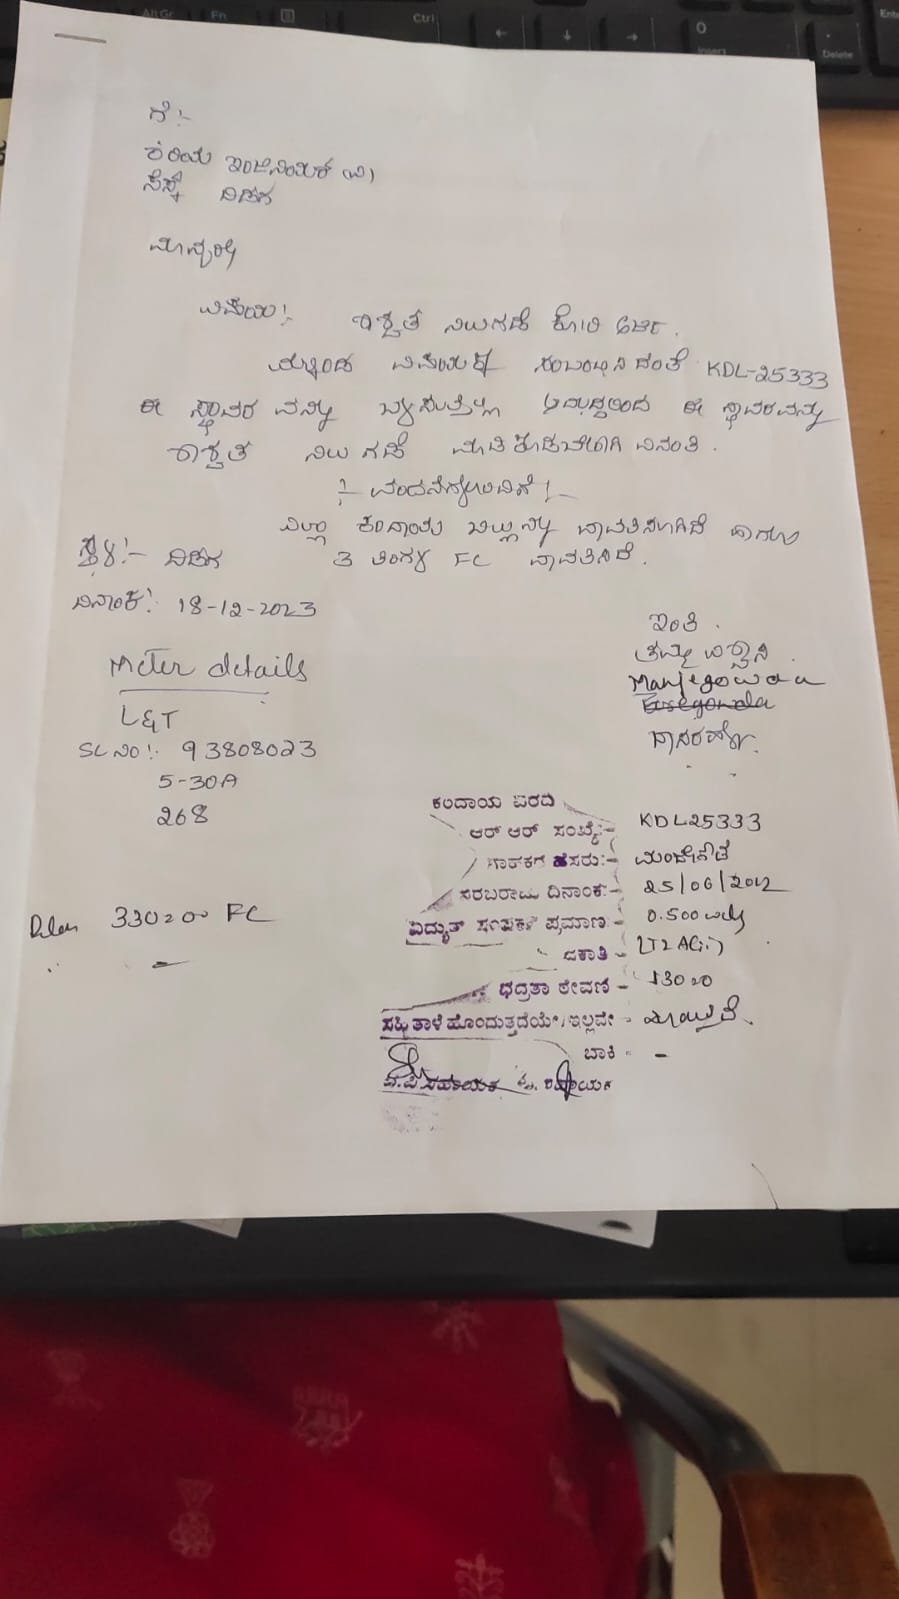 ಗೆ:-
ಕಿರಿಯ ಇಂಜಿನಿಯರ್ (ವಿ)
ಸೆಸ್ಕ್ ದಿಡಗ
ಮಾನ್ಯರೇ
ವಿಷಯ:- ಶಾಶ್ವತ ನಿಲುಗಡೆ ಕೋರಿ ಅರ್ಜಿ.
ಮೇಲ್ಕಂಡ ವಿಷಯಕ್ಕೆ ಸಂಬಂಧಿಸಿದಂತೆ KDL-25333
ಈ ಸ್ಥಾವರವನ್ನು ಬಳಸುತ್ತಿಲ್ಲ ಆದ್ದರಿಂದ ಈ ಸ್ಥಾವರವನ್ನು
ಶಾಶ್ವತ ನಿಲುಗಡೆ ಮಾಡಿಕೊಡಬೇಕಾಗಿ ವಿನಂತಿ.
:- ವಂದನೆಗಳೊಂದಿಗೆ :-
ಎಲ್ಲಾ ಕಂದಾಯ ಬಿಲ್ಲನ್ನು ಪಾವತಿಸಲಾಗಿದೆ ಹಾಗೂ
ಸ್ಥಳ:- ದಿಡಗ 3 ತಿಂಗಳ FC ಪಾವತಿಸಿದೆ.
ದಿನಾಂಕ:- 18-12-2023
ಇಂತಿ.
ತಮ್ಮ ವಿಶ್ವಾಸಿ.
Manjegowda
Meter details
L&T
SL ನಂ:- 93808023
5-30A
268
ಕಂದಾಯ ವರದಿ
ಆರ್ ಆರ್ ಸಂಖ್ಯೆ:- KDL25333
ಗ್ರಾಹಕರ ಹೆಸರು:- ಮಂಜೇಗೌಡ
ಸರಬರಾಜು ದಿನಾಂಕ:- 25/06/2012
ವಿದ್ಯುತ್ ಸಂಪರ್ಕ ಪ್ರಮಾಣ:- 0.500
ಜಕಾತಿ - LT2 A(i)
ಭದ್ರತಾ ಠೇವಣಿ -
ಸಹಿ ತಾಳೆ ಹೊಂದುತ್ತದೆಯೇ/ಇಲ್ಲವೇ -
ಬಾಕಿ - -
330=00 FC